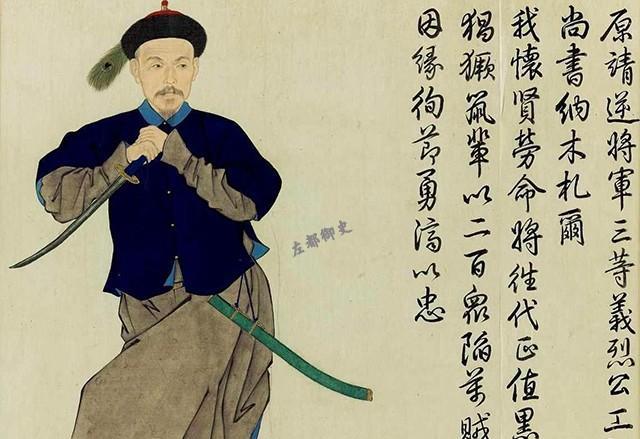 原靖逆將軍三等義烈公工
尚書納木札爾
我懷賢勞命將往代正值黑
猖獗鼠輩以二百眾陷萬賊
因緣徇節勇濟以忠
左都御史